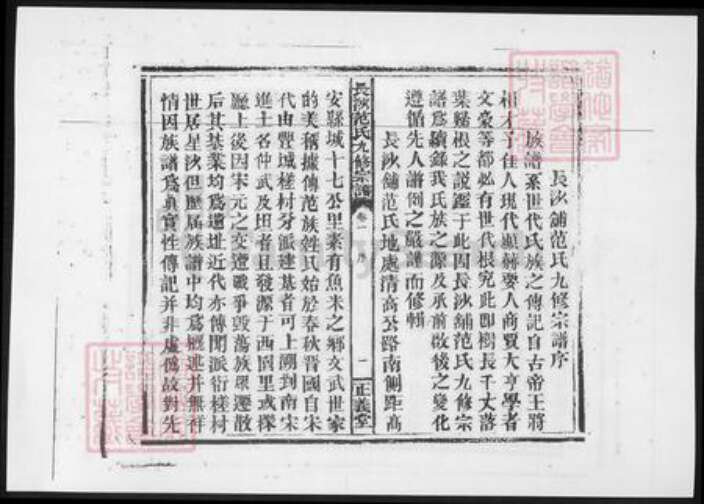 長沙舖范氏九修宗譜序
族譜系世代氏族之傳記自古帝王將
相才子佳人現代顯赫要人商賢大亨學者
文豪等都必有世代根究此即樹長千丈落
葉歸根之説鑑于此因長沙舖范氏九修宗
譜爲續錄我氏族之源及承前啟後之變化
遵循先人譜例之嚴謹而修輯
長沙舖范氏地處清高公路南側距高
長沙范氏九修宗譜
卷一
序
一
正義堂
安縣城十七公里素有魚米之鄉文武世家
的美稱據傳范族姓氏始於春秋晉國自宋
代由豐城槎村分派建基者可上溯到南宋
進士名仲武及坦者且發源于西園里或檪
廳上後因宋元之交遭戰爭毀蕩族眾遷散
后其基業均爲遺址近代亦傳聞派衍槎村
世居星沙但歷屆族譜中均爲概述并無詳
情因族譜爲真實性傳記并非虛僞故對先